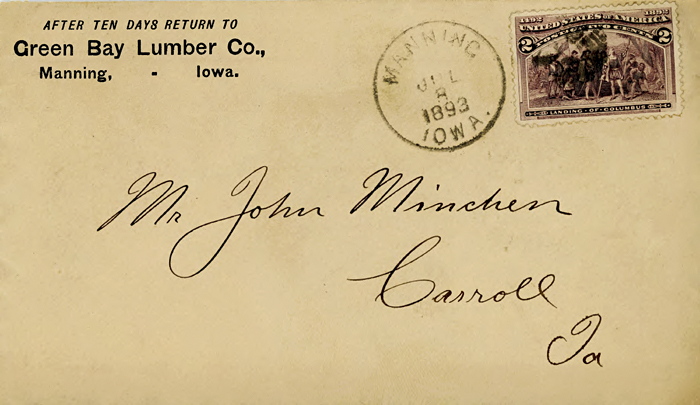 AFTER TEN DAYS RETURN TO
Green Bay Lumber Co.,
Manning, - Iowa.
MANNING
JUL
8
1893
IOWA.
1492 1892
UNITED STATES OF AMERICA
POSTAGE TWO CENTS
2 2
LANDING · OF · COLUMBUS
Mr John Minchen
Carroll
Ia